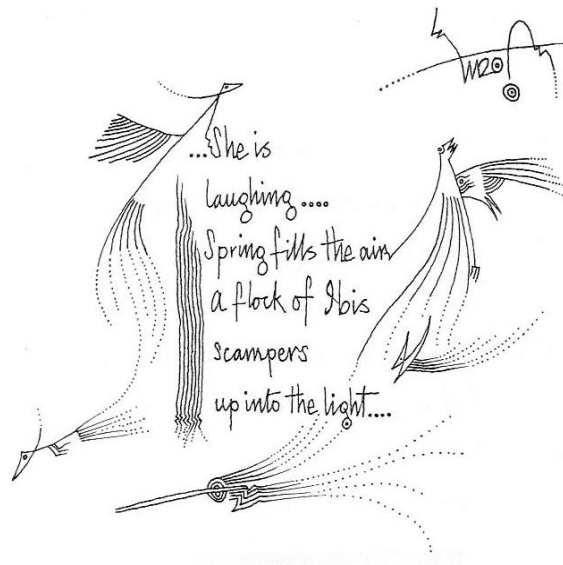 ...She is
laughing....
Spring fills the air
a flock of Ibis
scampers
up into the light....